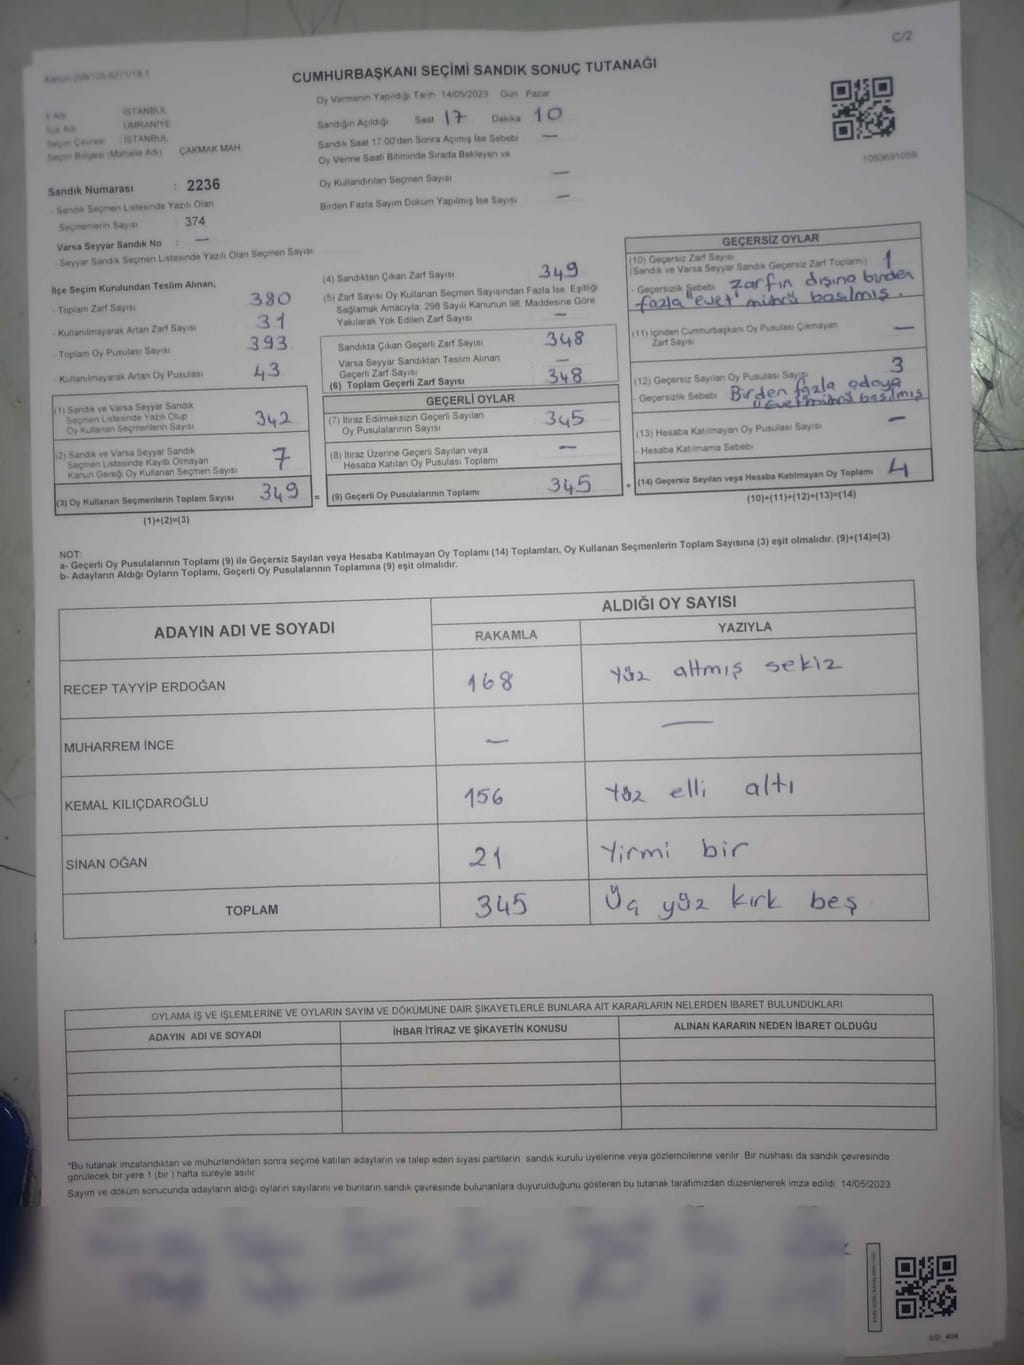 C/2
CUMHURBAŞKANI SEÇİMİ SANDIK SONUÇ TUTANAĞI
Oy Vermenin Yapıldığı Tarih 14/05/2023 Gün Pazar
Sandığın Açıldığı Saat 17 Dakika 10
Sandık Saat 17.00'den Sonra Açımış İse Sebebi —
Oy Verme Saati Bitiminde Sırada Bekleyen ve
Oy Kullandırılan Seçmen Sayısı —
Birden Fazla Sayım Döküm Yapılmış İse Sayısı —
İl Adı İSTANBUL
İlçe Adı ÜMRANİYE
Seçim Çevresi : İSTANBUL
Seçim Bölgesi (Mahalle Adı) ÇAKMAK MAH.
Sandık Numarası : 2236
- Sandık Seçmen Listesinde Yazılı Olan
Seçmenlerin Sayısı : 374
Varsa Seyyar Sandık No : —
- Seyyar Sandık Seçmen Listesinde Yazılı Olan Seçmen Sayısı
İlçe Seçim Kurulundan Teslim Alınan,
- Toplam Zarf Sayısı 380
- Kullanılmayarak Artan Zarf Sayısı 31
- Toplam Oy Pusulası Sayısı 393
- Kullanılmayarak Artan Oy Pusulası 43
(1) Sandık ve Varsa Seyyar Sandık
Seçmen Listesinde Yazılı Olup
Oy Kullanan Seçmenlerin Sayısı 342
(2) Sandık ve Varsa Seyyar Sandık
Seçmen Listesinde Kayıtlı Olmayan
Kanun Gereği Oy Kullanan Seçmen Sayısı 7
(3) Oy Kullanan Seçmenlerin Toplam Sayısı 349 =
(1)+(2)=(3)
(4) Sandıktan Çıkan Zarf Sayısı 349
(5) Zarf Sayısı Oy Kullanan Seçmen Sayısından Fazla İse, Eşitliği
Sağlamak Amacıyla, 298 Sayılı Kanunun 98. Maddesine Göre
Yakılarak Yok Edilen Zarf Sayısı —
Sandıkta Çıkan Geçerli Zarf Sayısı 348
Varsa Seyyar Sandıktan Teslim Alınan
Geçerli Zarf Sayısı —
(6) Toplam Geçerli Zarf Sayısı 348
GEÇERLİ OYLAR
(7) İtiraz Edilmeksizin Geçerli Sayılan
Oy Pusulalarının Sayısı 345
(8) İtiraz Üzerine Geçerli Sayılan veya
Hesaba Katılan Oy Pusulası Toplamı —
(9) Geçerli Oy Pusulalarının Toplamı 345 +
GEÇERSİZ OYLAR
(10) Geçersiz Zarf Sayısı 1
(Sandık ve Varsa Seyyar Sandık Geçersiz Zarf Toplamı)
- Geçersizlik Sebebi Zarfın dışına birden
fazla "evet" mührü basılmış.
(11) İçinden Cumhurbaşkanı Oy Pusulası Çıkmayan
Zarf Sayısı —
(12) Geçersiz Sayılan Oy Pusulası Sayısı 3
- Geçersizlik Sebebi Birden fazla adaya
"Evet" mührü basılmış
(13) Hesaba Katılmayan Oy Pusulası Sayısı —
- Hesaba Katılmama Sebebi
(14) Geçersiz Sayılan veya Hesaba Katılmayan Oy Toplamı 4
(10)+(11)+(12)+(13)=(14)
NOT:
a- Geçerli Oy Pusulalarının Toplamı (9) ile Geçersiz Sayılan veya Hesaba Katılmayan Oy Toplamı (14) Toplamları, Oy Kullanan Seçmenlerin Toplam Sayısına (3) eşit olmalıdır. (9)+(14)=(3)
b- Adayların Aldığı Oyların Toplamı, Geçerli Oy Pusulalarının Toplamına (9) eşit olmalıdır.
ADAYIN ADI VE SOYADI
ALDIĞI OY SAYISI
RAKAMLA YAZIYLA
RECEP TAYYİP ERDOĞAN 168 Yüz altmış sekiz
MUHARREM İNCE — —
KEMAL KILIÇDAROĞLU 156 Yüz elli altı
SİNAN OĞAN 21 Yirmi bir
TOPLAM 345 Üç yüz kırk beş
OYLAMA İŞ VE İŞLEMLERİNE VE OYLARIN SAYIM VE DÖKÜMÜNE DAİR ŞİKAYETLERLE BUNLARA AİT KARARLARIN NELERDEN İBARET BULUNDUKLARI
ADAYIN ADI VE SOYADI İHBAR İTİRAZ VE ŞİKAYETİN KONUSU ALINAN KARARIN NEDEN İBARET OLDUĞU
*Bu tutanak imzalandıktan ve mühürlendikten sonra seçime katılan adayların ve talep eden siyasi partilerin sandık kurulu üyelerine veya gözlemcilerine verilir. Bir nüshası da sandık çevresinde
görülecek bir yere 1 (bir ) hafta süreyle asılır.
Sayım ve döküm sonucunda adayların aldığı oyların sayılarını ve bunların sandık çevresinde bulunanlara duyurulduğunu gösteren bu tutanak tarafımızdan düzenlenerek imza edildi. 14/05/2023